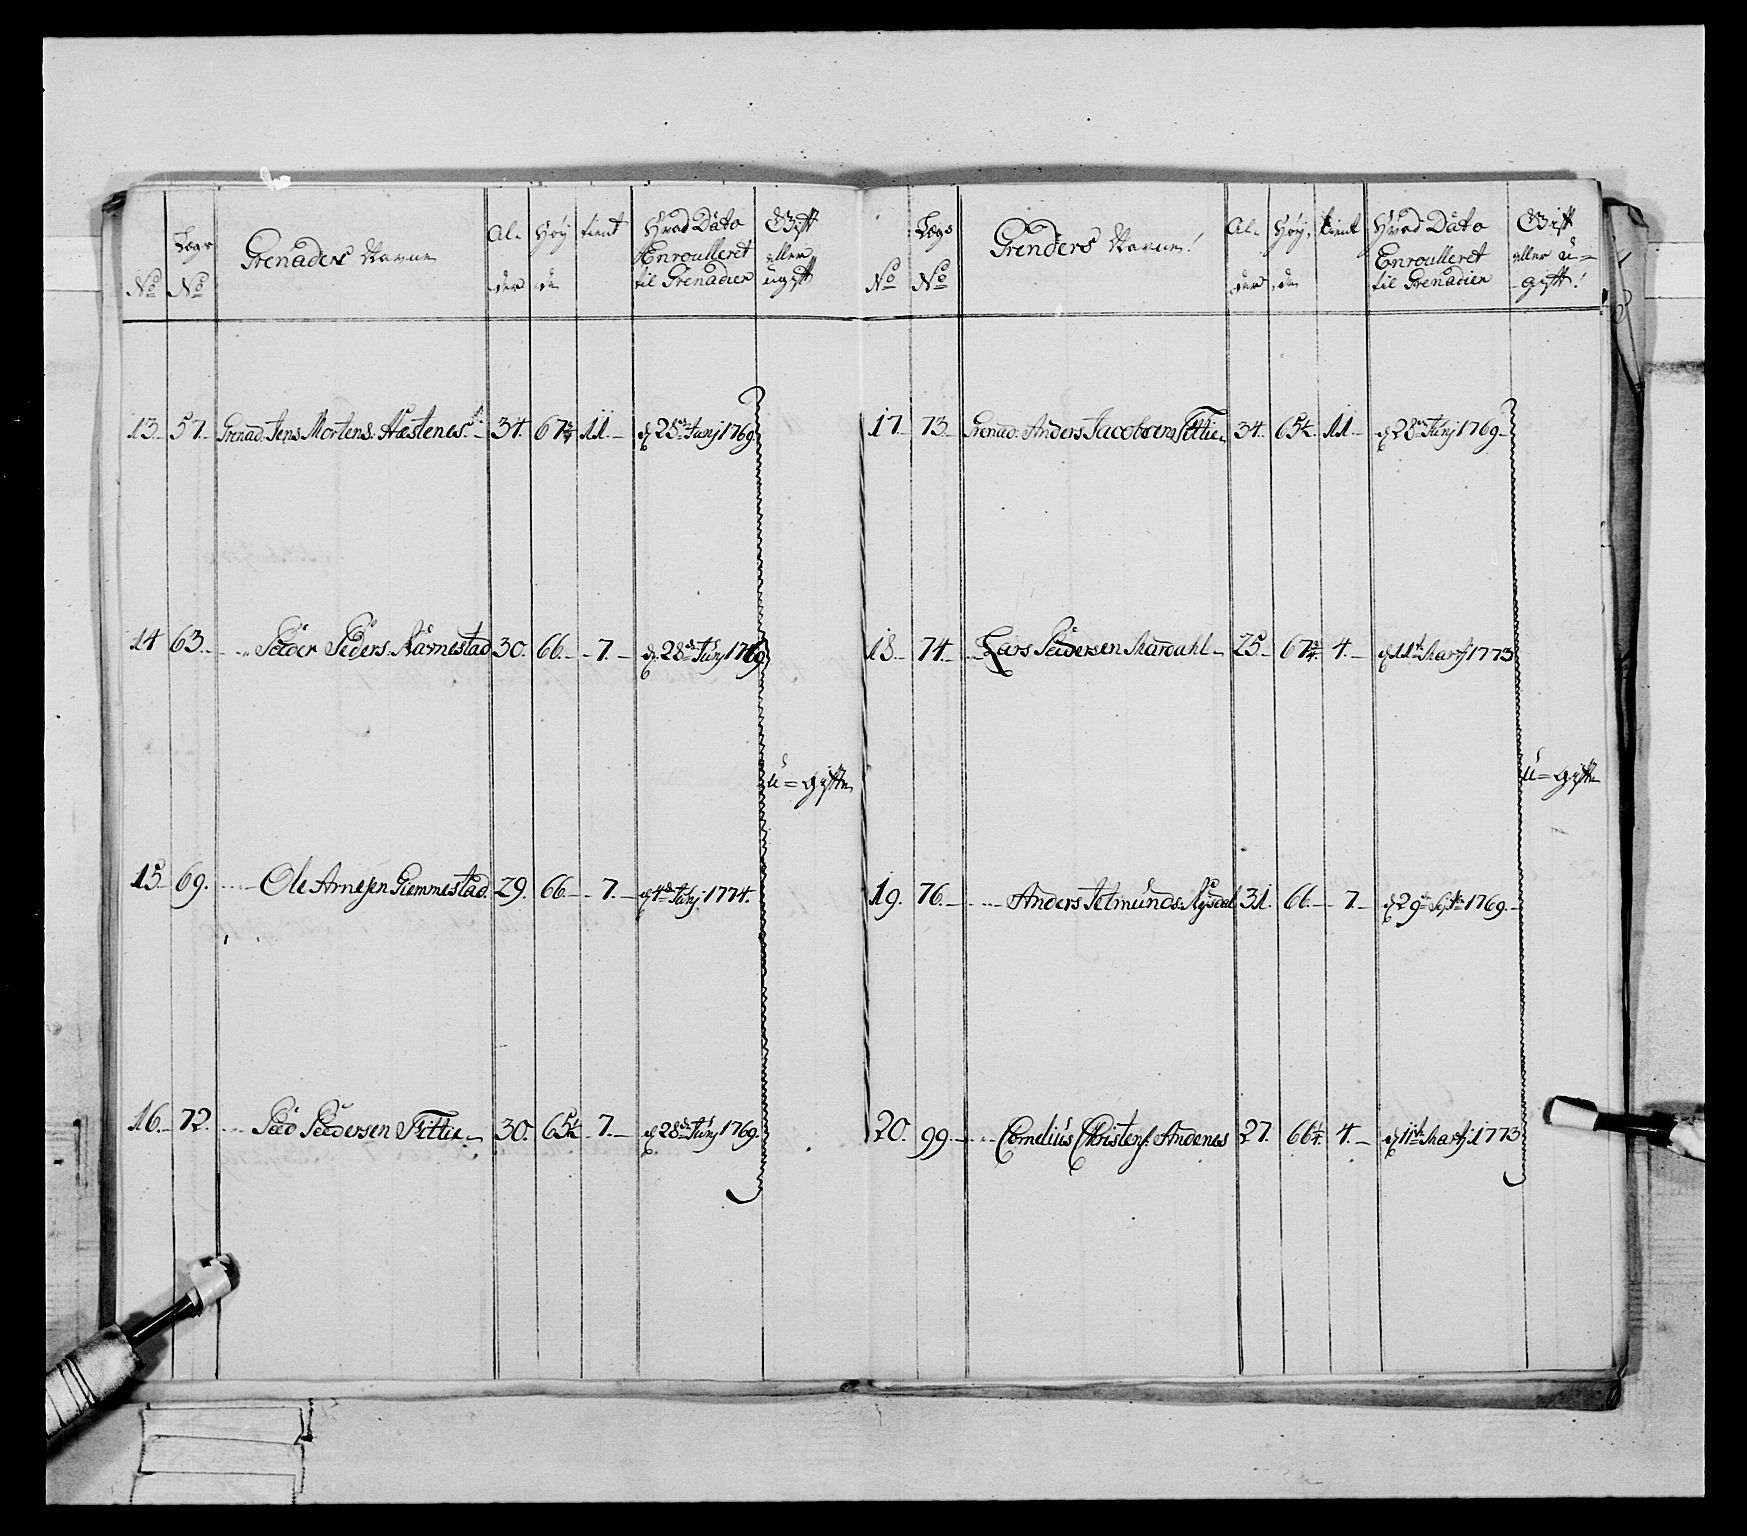 No Lægs No Grenaders Navne Alder Høyde tient Hvad Dato Enroulleret til Grenadier Gift eller ugift
13. 57. Grenad. Jens Mortens. Hæstenes 34. 67 3/4 11. d 28de Junj 1769.
14 63. Peder Peders. Navnestad 30. 66. 7. d 28de Junj 1769
u=gifte
15. 69. Ole Arnesen Giemmestad. 29. 66. 7. d 4de Junj 1774.
16. 72. Peder Pedersen Fittie 30. 65 1/2 7. d 28de Junj 1769.
No Lægs No Grenders Navne! Alder Høyde, tient Hvad Dato Enroulleret til Grenadier Gift eller u=gift!
17. 73. Grenad. Anders Jacobsen Fittie 34. 65 1/2 11. d 28de Junj 1769.
18. 74. Lars Pedersen Mardahl 25. 67 3/4 4. d 11t Martj 1773
u=gifte
19. 76. Anders Jetmunds. Nysdal 31. 66. 7. d 29de Sept 1769.
20. 99. Cornelius Christens. Andenes 27. 66 1/4. 4. d 11t Martj 1773